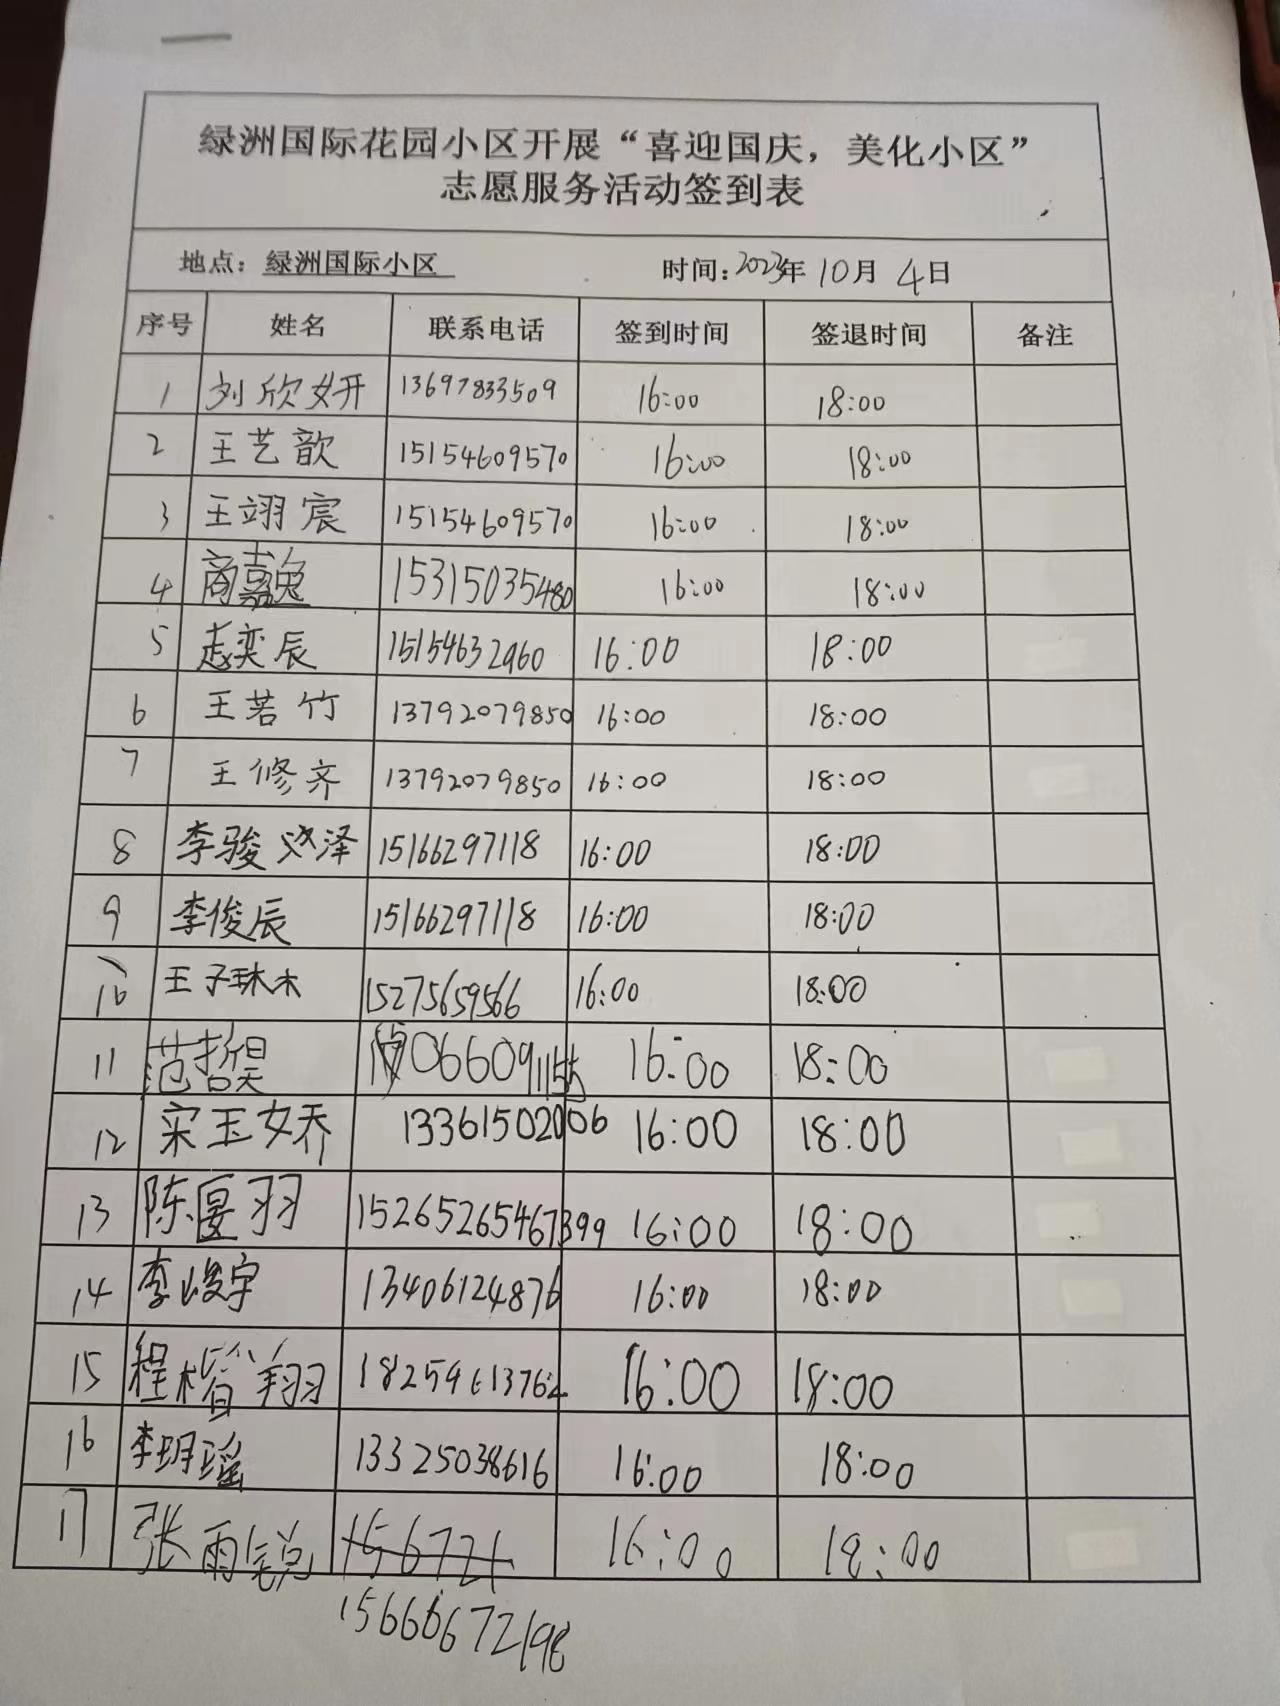 绿洲国际花园小区开展“喜迎国庆，美化小区”
志愿服务活动签到表
地点：绿洲国际小区 时间：2023年10月4日
序号 姓名 联系电话 签到时间 签退时间 备注
1 刘欣妍 13697833509 16:00 18:00
2 王艺歆 15154609570 16:00 18:00
3 王翊宸 15154609570 16:00 18:00
4 商嘉逸 15315035480 16:00 18:00
5 奕辰 15154632960 16:00 18:00
6 王若竹 13792079850 16:00 18:00
7 王修齐 13792079850 16:00 18:00
8 李骏泽 15166297118 16:00 18:00
9 李俊辰 15166297118 16:00 18:00
10 王子琳 15275659566 16:00 18:00
11 范哲昊 16:00 18:00
12 宋玉娇 13361502006 16:00 18:00
13 陈宴羽 15265265467399 16:00 18:00
14 李峻宇 13406124876 16:00 18:00
15 程楷翔 16:00 18:00
16 李玥瑶 13325038616 16:00 18:00
17 张雨锐 156721 16:00 18:00
15666672198